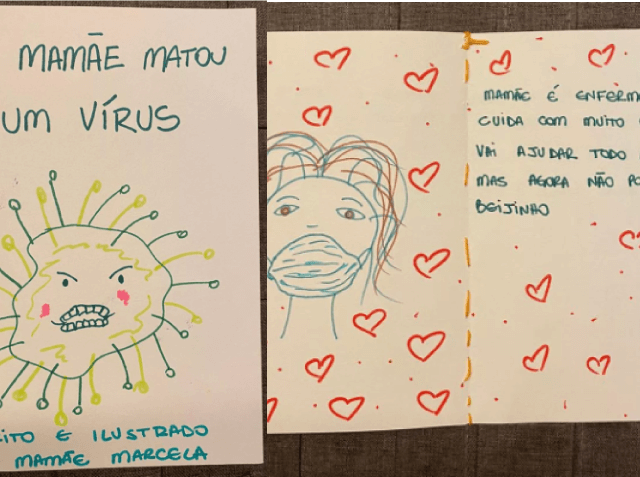 MAMÃE MATOU
UM VÍRUS
E ILUSTRADO
MAMÃE MARCELA
MAMÃE É
CUIDA COM MUITO
VAI AJUDAR TODO
MAS AGORA NÃO
BEIJINHO